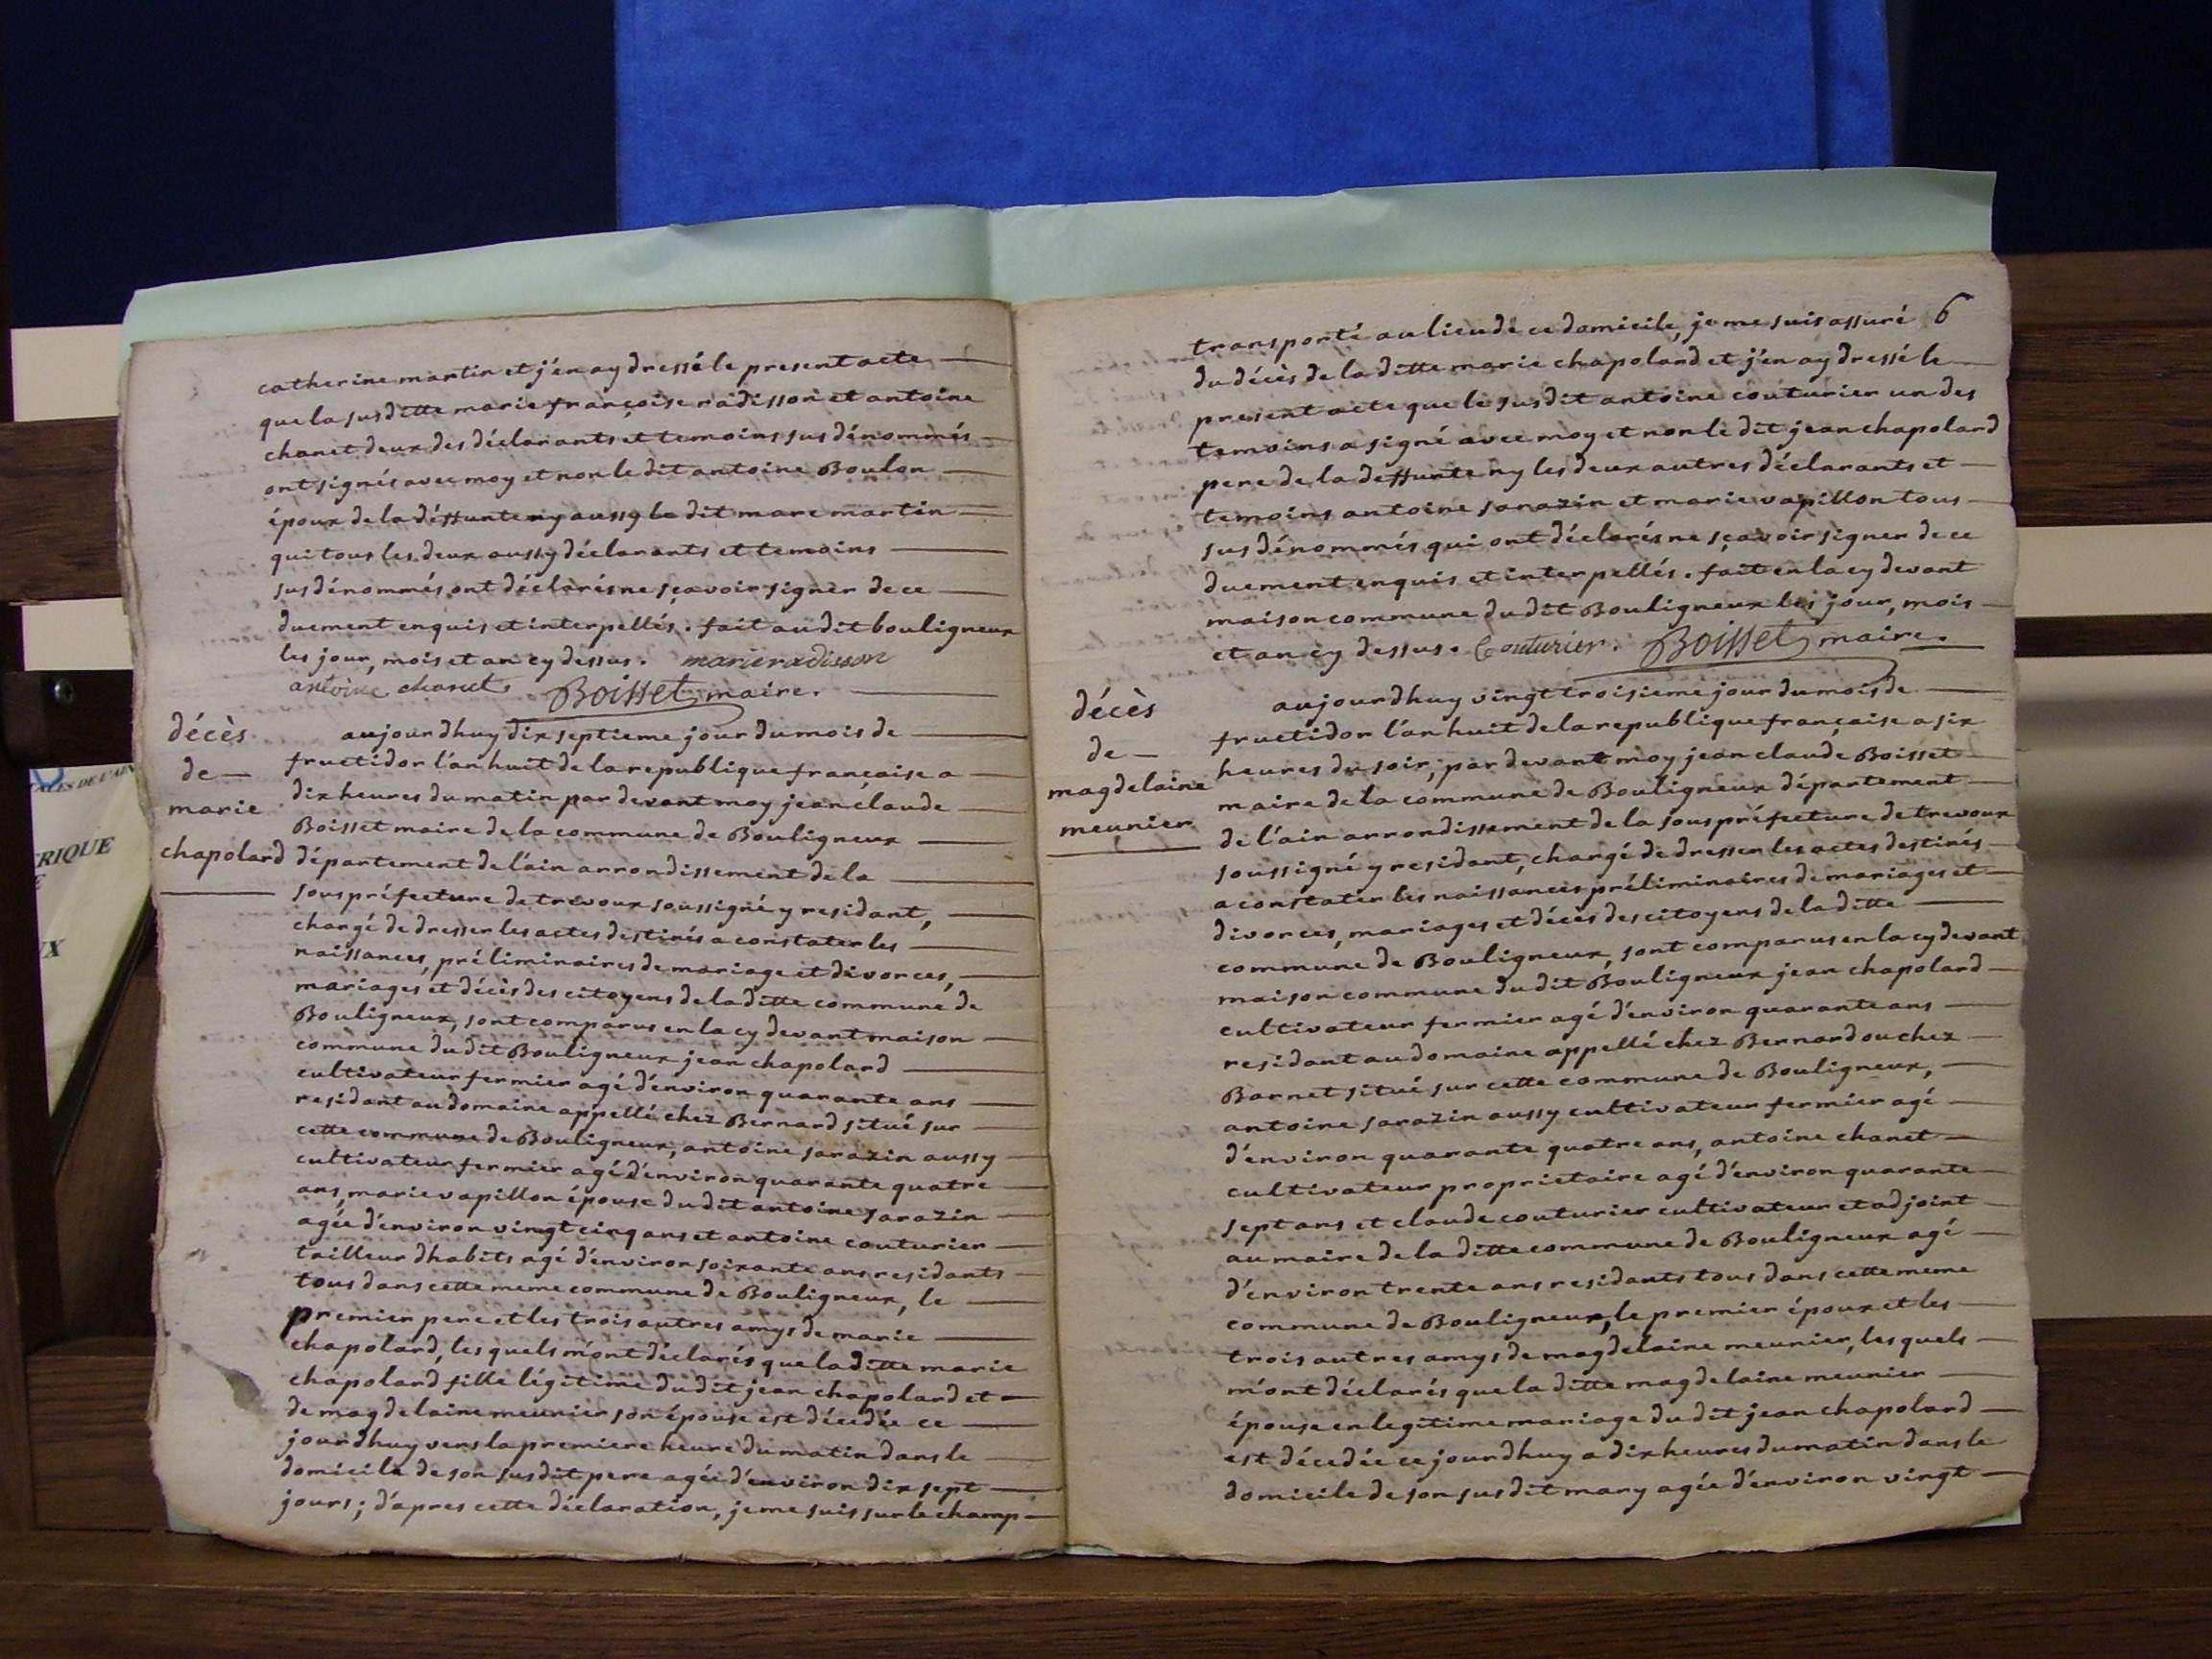 catherine martin et j'én ay dressé le present acte
que la susditte marie françoise radisson et antoine
chanet deux des déclarants et temoins sus dénommés
ont signés avec moy et non le dit antoine Boulon
époux de la déffunte ny aussy le dit marc martin
qui tous les deux aussy déclarants et temoins
sus dénommés ont déclarés ne sçavoir signer de ce
duement enquis et interpellés. fait au dit bouligneux
les jour, mois et an cy dessus. marie radisson
antoine chanet Boisset maire.
décès
de
marie
chapolard
aujourdhuy dix septieme jour du mois de
fructidor l'an huit de la republique française a
dix heures du matin par devant moy jean claude
Boisset maire de la commune de Bouligneux
département de l'ain arrondissement de la
sous préfecture de trevoux soussigné y residant,
chargé de dresser les actes destinés a constater les
naissances, préliminaires de mariage et divorces,
mariages et décès des citoyens de la ditte commune de
Bouligneux, sont comparus en la cy devant maison
commune du dit Bouligneux jean chapolard
cultivateur fermier agé d'énviron quarante ans
residant au domaine appellé chez Bernard situé sur
cette commune de Bouligneux, antoine sarazin aussy
cultivateur fermier agé d'énviron quarante quatre
ans, marie vapillon épouse du dit antoine sarazin
agée d'énviron vingt cinq ans et antoine couturier
tailleur dhabits agé d'énviron soixante ans residants
tous dans cette meme commune de Bouligneux, le
premier pere et les trois autres amys de marie
chapolard, les quels m'ont déclarés que la ditte marie
chapolard fille légitime du dit jean chapolard et
de magdelaine meunier son épouse est décedée ce
jourdhuy vers la premiere heure du matin dans le
domicile de son susdit pere agée d'énviron dix sept
jours; d'apres cette déclaration, je me suis sur le champ
6
transporté au lieu de ce domicile, je me suis assuré
du décès de la ditte marie chapolard et j'én ay dressé le
present acte que le susdit antoine couturier un des
temoins a signé avec moy et non le dit jean chapolard
pere de la deffunte ny les deux autres déclarants et
temoins antoine sarazin et marie vapillon tous
sus dénommés qui ont déclarés ne sçavoir signer de ce
duement enquis et interpellés. fait en la cy devant
maison commune du dit Bouligneux les jour, mois
et an cy dessus. Couturier. Boisset maire.
décès
de
magdelaine
meunier
aujourdhuy vingt troisieme jour du mois de
fructidor l'an huit de la republique française a six
heures du soir, par devant moy jean claude Boisset
maire de la commune de Bouligneux département
de l'ain arrondissement de la sous préfecture de trevoux
soussigné y residant, chargé de dresser les actes destinés
a constater les naissances préliminaires de mariages et
divorces, mariages et décès des citoyens de la ditte
commune de Bouligneux, sont comparus en la cy devant
maison commune du dit Bouligneux jean chapolard
cultivateur fermier agé d'énviron quarante ans
residant au domaine appellé chez Bernard ou chez
Barnet situé sur cette commune de Bouligneux,
antoine sarazin aussy cultivateur fermier agé
d'énviron quarante quatre ans, antoine chanet
cultivateur proprietaire agé d'énviron quarante
sept ans et claude couturier cultivateur et adjoint
au maire de la ditte commune de Bouligneux agé
d'énviron trente ans residants tous dans cette meme
commune de Bouligneux, le premier époux et les
trois autres amys de magdelaine meunier, les quels
m'ont déclarés que la ditte magdelaine meunier
épouse en legitime mariage du dit jean chapolard
est décedée ce jourdhuy a dix heures du matin dans le
domicile de son susdit mary agée d'énviron vingt
RIQUE
X